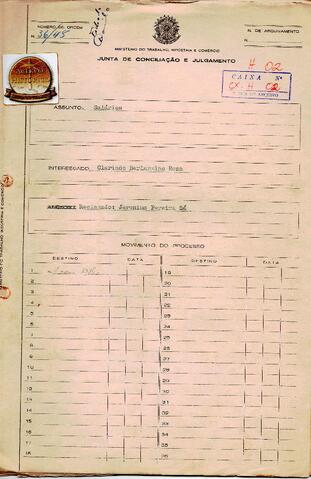 NUMERO DE ORDEM
N. 36/48
N. DE ARQUIVAMENTO
N.
MINISTERIO DO TRABALHO, INDUSTRIA E COMÉRCIO
JUNTA DE CONCILIAÇÃO E JULGAMENTO
H 02
CAIXA Nº
CX. H 02
ASSUNTO: Salários
INTERESSADO: Clarindo
Reclamado: Jeronimo Pereira
MOVIMENTO DO PROCESSO
DESTINO DATA DESTINO DATA
1 19
2 20
3 21
4 22
5 23
6 24
7 25
8 26
9 27
10 28
11 29
12 30
13 31
14 32
15 33
16 34
17 35
18 36